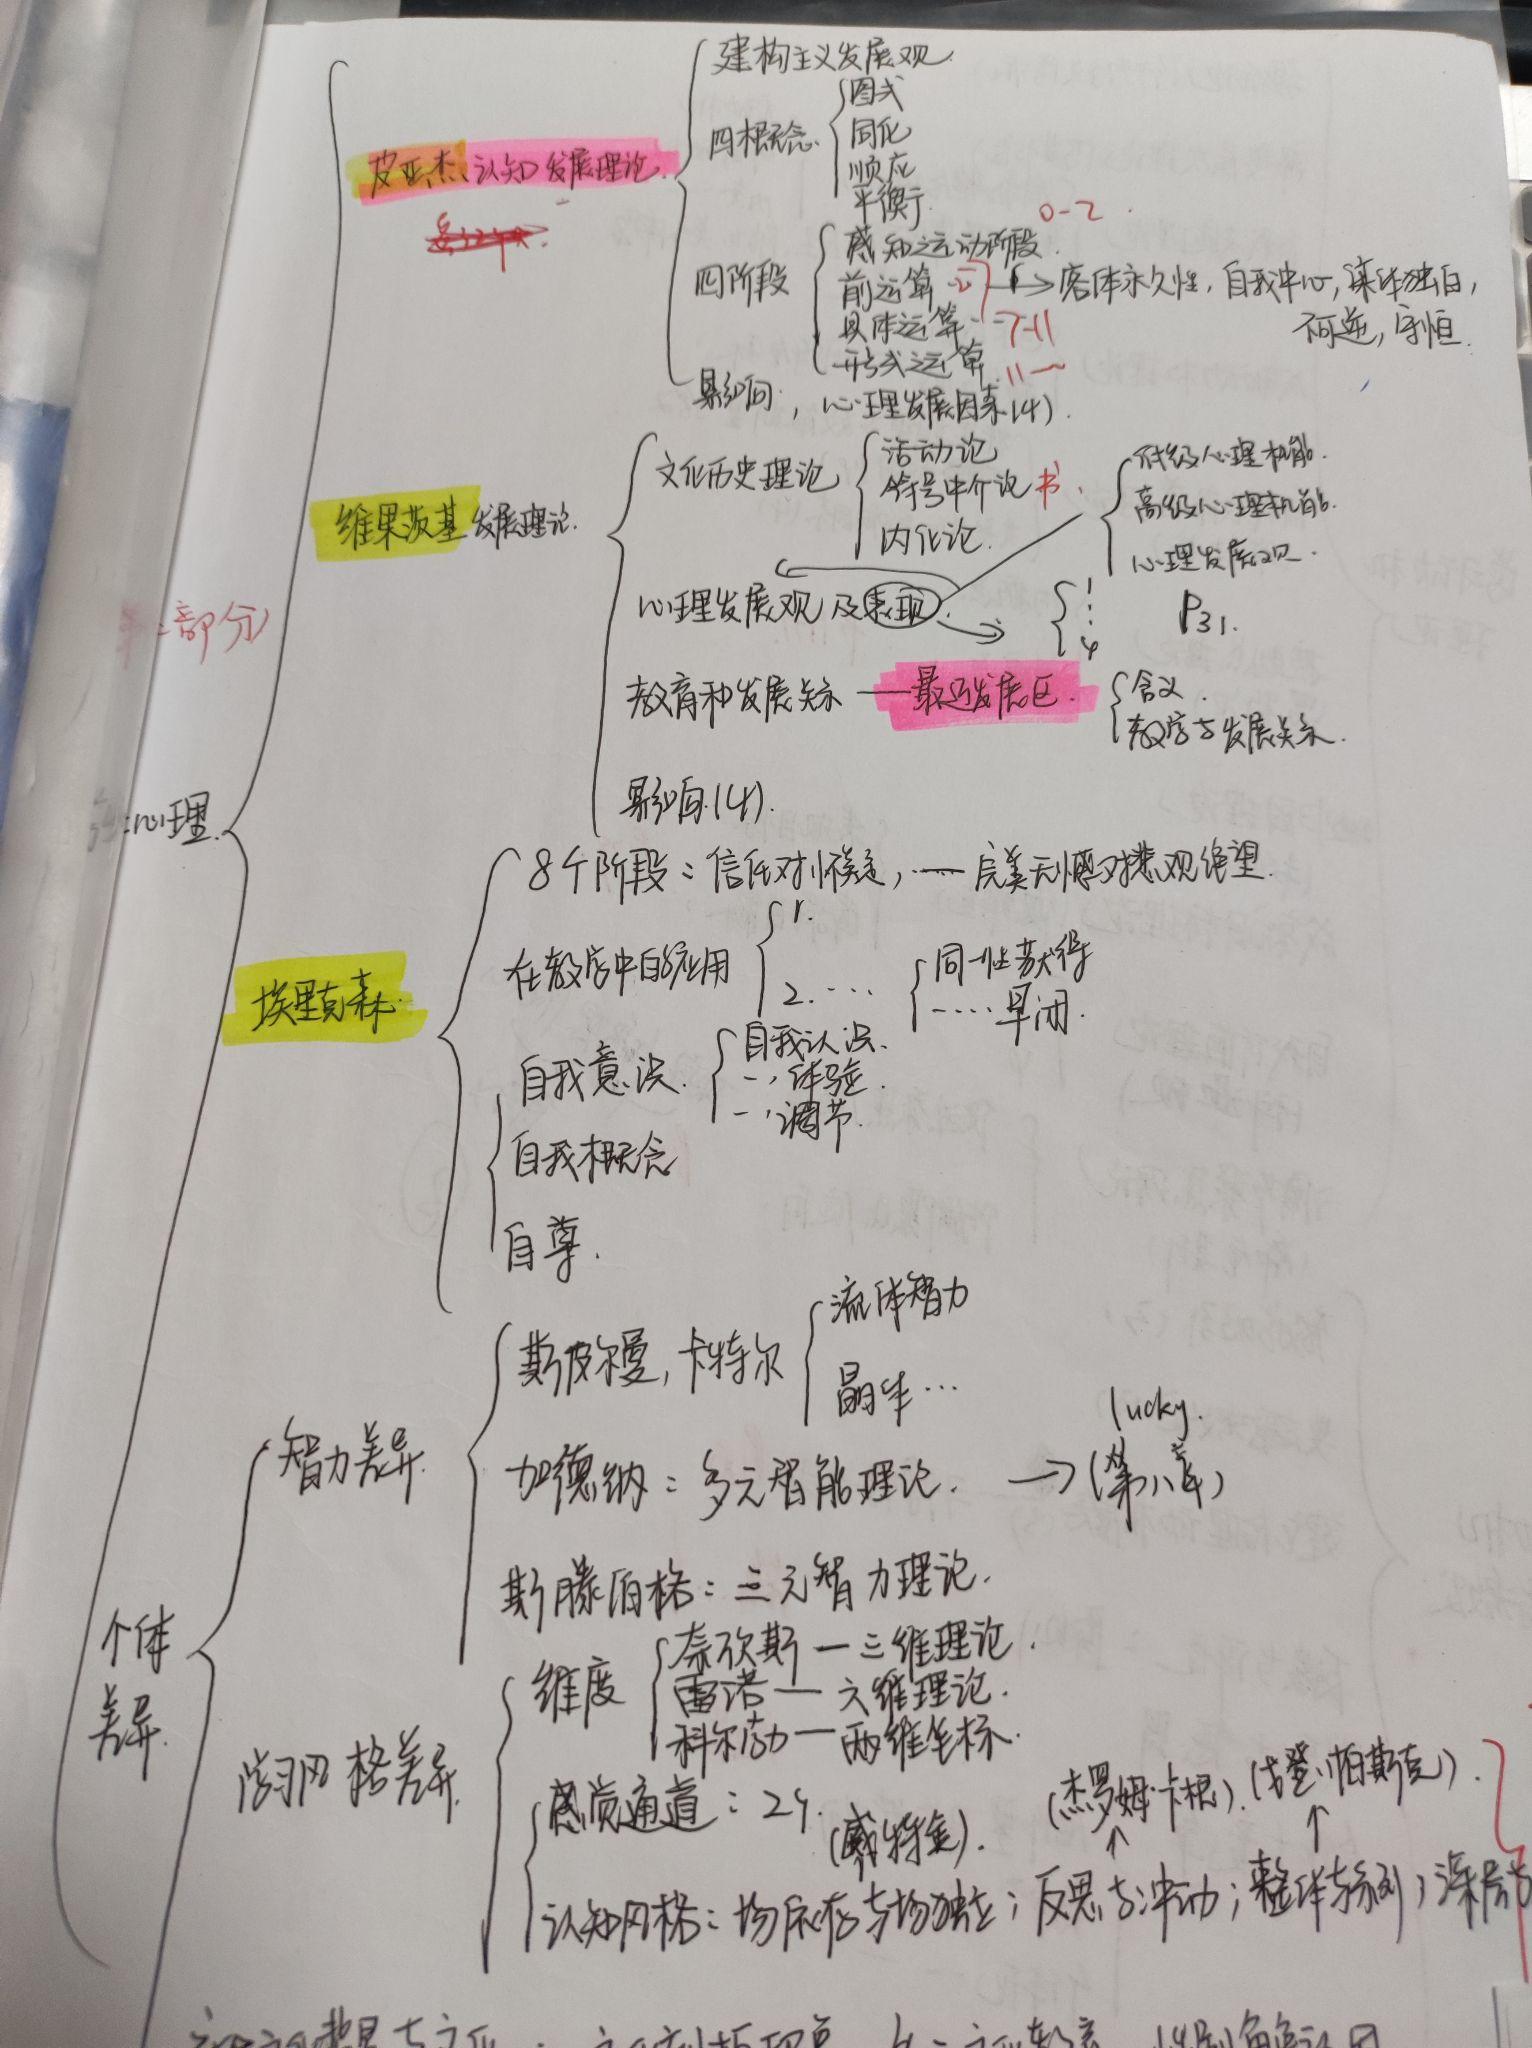 建构主义发展观
四概念
图式
同化
顺应
平衡
皮亚杰、认知发展理论
四阶段
感知运动阶段 0-2
前运算 2-7 → 客体永久性,自我中心,集体独白,
不可逆,守恒
具体运算 7-11
形式运算 11~
影响,心理发展因素(4).
维果茨基发展理论.
文化历史理论
活动论
符号中介论 书
内化论.
低级心理机能.
高级心理机能.
心理发展观.
心理发展观及表现
1
⋮
4
P31.
教育和发展关系——最近发展区.
含义.
教学与发展关系.
影响.(4).
部分
心理
埃里克森.
8个阶段:信任对怀疑,——完美无憾对悲观绝望.
在教学中的应用
1.
2.…
同一性获得
……早闭.
自我意识.
自我认识.
体验.
调节.
自我概念
自尊.
个体
差异.
智力差异.
斯皮尔曼,卡特尔
流体智力
晶体…
加德纳:多元智能理论. →(第八章)
lucky.
斯滕伯格:三元智力理论.
学习风格差异.
维度
奈欣斯—三维理论.
雷诺—六维理论.
科尔勃—两维坐标.
感觉通道:24.
(威特金).
(杰罗姆·卡根).(戈登·帕斯克).
认知风格:场依存与场独立;反思与冲动;整体与系列;深层与